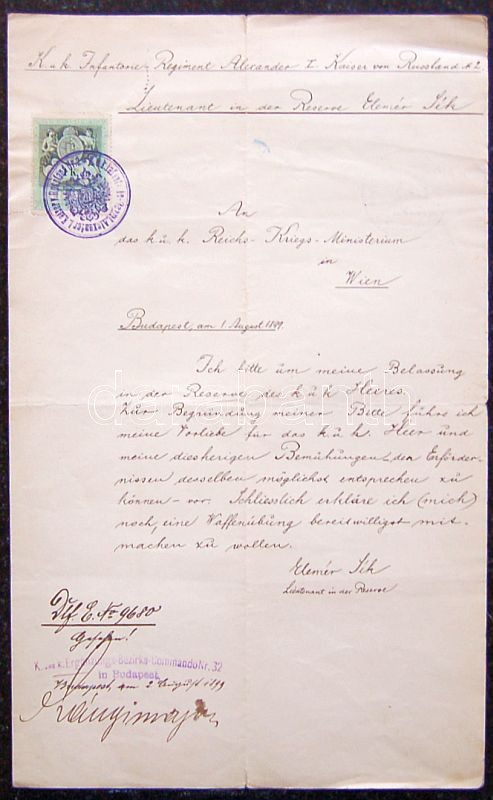 K. u. k. Infanterie-Regiment Alexander I. Kaiser von Russland № 2
Lieutenant in der Reserve Elemér Sik
An
das k. u. k. Reichs-Kriegs-Ministerium
in
Wien
Budapest, am 1. August 1899.
Ich bitte um meine Belassung
in der Reserve des k. u. k. Heeres.
Zur Begründung meiner Bitte führe ich
meine Vorliebe für das k. u. k. Heer und
meine diesherigen Bemühungen, den Erforder-
nissen desselben möglichst entsprechen zu
können – vor. Schliesslich erkläre ich (mich)
noch, eine Waffenübung bereitwilligst mit-
machen zu wollen.
Elemér Sik
Lieutenant in der Reserve
E. No 9680
Gesehen!
K. und k. Ergänzungs-Bezirks-Commando Nr. 32
in Budapest.
Budapest, am 2 August 1899